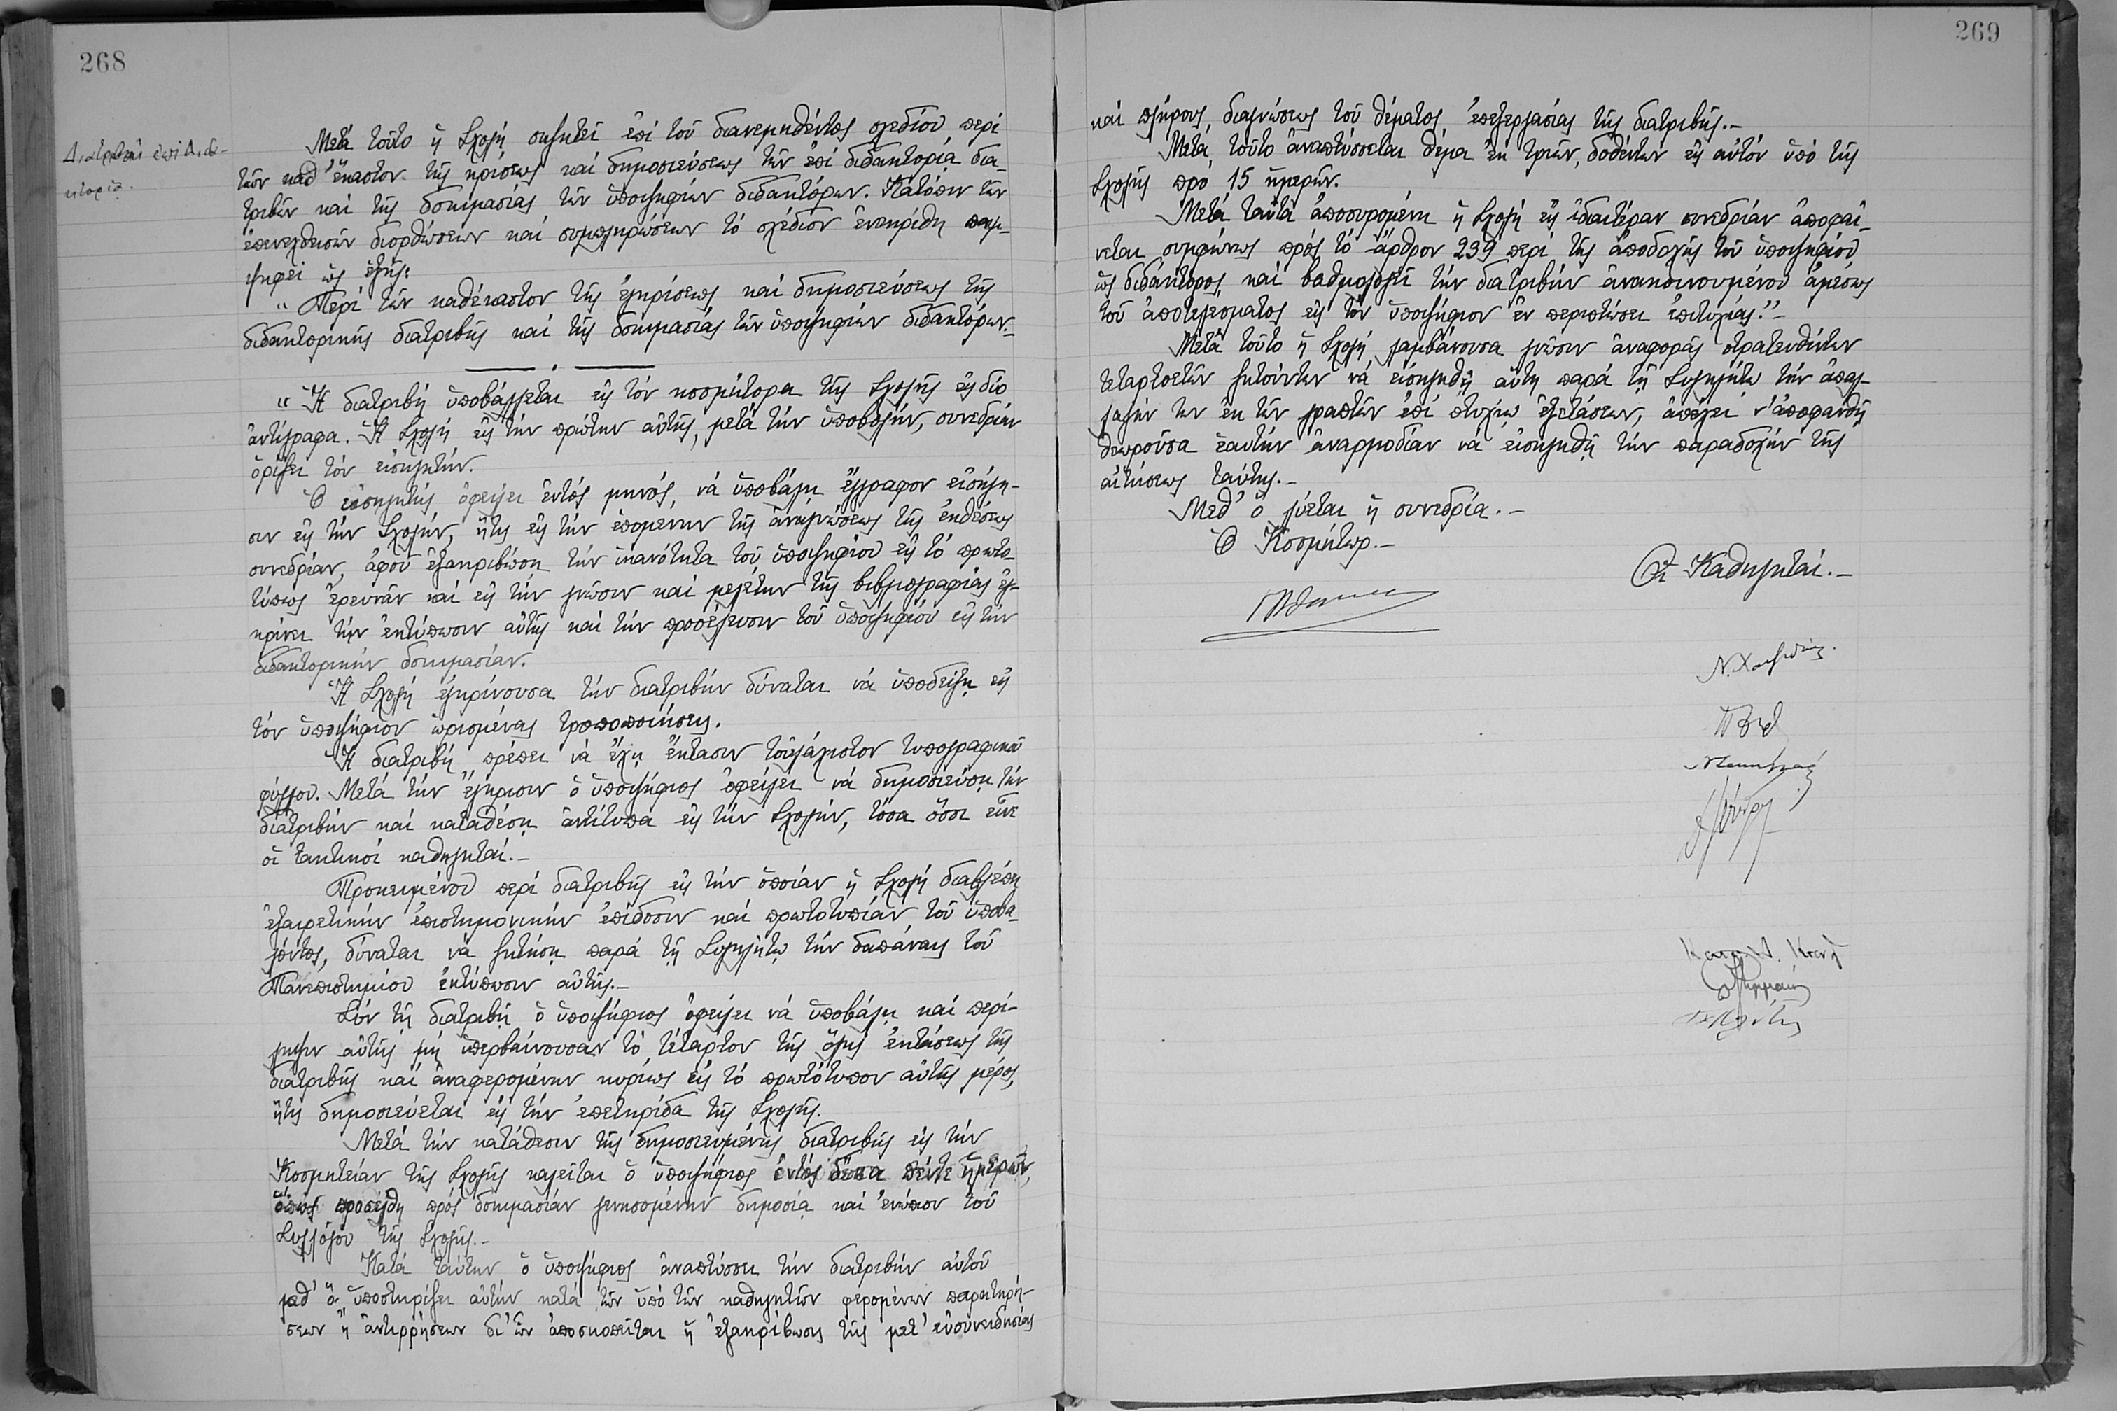 268
Διατριβαί ἐπί Διδα-
κτορίᾳ.
Μετά τοῦτο ἡ Σχολή συζητεῖ ἐπί τοῦ διανεμηθέντος σχεδίου περί
τῶν καθ' ἕκαστον τῆς κρίσεως καί δημοσιεύσεως τῶν ἐπί διδακτορίᾳ δια-
τριβῶν καί τῆς δοκιμασίας τῶν ὑποψηφίων διδακτόρων. Κατόπιν τῶν
ἐπενεχθεισῶν διορθώσεων καί συμπληρώσεων τό σχέδιον ἐνεκρίθη παμ-
ψηφεί ὡς ἑξῆς:
"Περί τῶν καθέκαστον τῆς ἐγκρίσεως καί δημοσιεύσεως τῆς
διδακτορικῆς διατριβῆς καί τῆς δοκιμασίας τῶν ὑποψηφίων διδακτόρων.
"Ἡ διατριβή ὑποβάλλεται εἰς τόν κοσμήτορα τῆς Σχολῆς εἰς δύο
ἀντίγραφα. Ἡ Σχολή εἰς τήν πρώτην αὐτῆς, μετά τήν ὑποβολήν, συνεδρίαν
ὁρίζει τόν εἰσηγητήν.
Ὁ εἰσηγητής ὀφείλει ἐντός μηνός, νά ὑποβάλῃ ἔγγραφον εἰσήγη-
σιν εἰς τήν Σχολήν, ἥτις εἰς τήν ἑπομένην τῆς ἀναγνώσεως τῆς ἐκθέσεως
συνεδρίαν, ἀφοῦ ἐξακριβώσῃ τήν ἱκανότητα τοῦ ὑποψηφίου εἰς τό πρωτο-
τύπως ἐρευνᾶν καί εἰς τήν γνῶσιν καί μελέτην τῆς βιβλιογραφίας ἐγ-
κρίνει τήν ἐκτύπωσιν αὐτῆς καί τήν προσέλευσιν τοῦ ὑποψηφίου εἰς τήν
διδακτορικήν δοκιμασίαν.
Ἡ Σχολή ἐγκρίνουσα τήν διατριβήν δύναται νά ὑποδείξῃ εἰς
τόν ὑποψήφιον ὡρισμένας τροποποιήσεις.
Ἡ διατριβή πρέπει νά ἔχῃ ἔκτασιν τοὐλάχιστον τυπογραφικοῦ
φύλλου. Μετά τήν ἔγκρισιν ὁ ὑποψήφιος ὀφείλει νά δημοσιεύσῃ τήν
διατριβήν καί καταθέσῃ ἀντίτυπα εἰς τήν Σχολήν, τόσα ὅσοι εἶνε
οἱ τακτικοί καθηγηταί.-
Προκειμένου περί διατριβῆς εἰς τήν ὁποίαν ἡ Σχολή διαβλέπει
ἐξαιρετικήν ἐπιστημονικήν ἐπίδοσιν καί πρωτοτυπίαν τοῦ ὑποβα-
λόντος, δύναται νά ζητήσῃ παρά τῇ Συγκλήτῳ τήν δαπάναις τοῦ
Πανεπιστημίου ἐκτύπωσιν αὐτῆς.-
Σύν τῇ διατριβῇ ὁ ὑποψήφιος ὀφείλει νά ὑποβάλῃ καί περί-
ληψιν αὐτῆς μή ὑπερβαίνουσαν τό τέταρτον τῆς ὅλης ἐκτάσεως τῆς
διατριβῆς καί ἀναφερομένην κυρίως εἰς τό πρωτότυπον αὐτῆς μέρος,
ἥτις δημοσιεύεται εἰς τήν ἐπετηρίδα τῆς Σχολῆς.
Μετά τήν κατάθεσιν τῆς δημοσιευμένης διατριβῆς εἰς τήν
Κοσμητείαν τῆς Σχολῆς καλεῖται ὁ ὑποψήφιος ἐντός δέκα πέντε ἡμερῶν,
ὅπως προσέλθῃ πρός δοκιμασίαν γενησομένην δημοσίᾳ καί ἐνώπιον τοῦ
Συλλόγου τῆς Σχολῆς.-
Κατά ταύτην ὁ ὑποψήφιος ἀναπτύσσει τήν διατριβήν αὐτοῦ
μεθ' ὅ ὑποστηρίζει αὐτήν κατά τῶν ὑπό τῶν καθηγητῶν φερομένων παρατηρή-
σεων ἤ ἀντιρρήσεων δι' ὧν ἀποσκοπεῖται ἡ ἐξακρίβωσις τῆς μετ' εὐσυνειδησίας
269
καί πλήρους διαγνώσεως τοῦ θέματος ἐπεξεργασίας τῆς διατριβῆς.-
Μετά τοῦτο ἀναπτύσσεται θέμα ἐκ τριῶν, δοθέντων εἰς αὐτόν ὑπό τῆς
Σχολῆς πρό 15 ἡμερῶν.
Μετά ταῦτα ἀποσυρομένη ἡ Σχολή εἰς ἰδιαιτέραν συνεδρίαν ἀποφαί-
νεται συμφώνως πρός τό ἄρθρον 239 περί τῆς ἀποδοχῆς τοῦ ὑποψηφίου
ὡς διδάκτορος καί βαθμολογεῖ τήν διατριβήν ἀνακοινουμένου ἀμέσως
τοῦ ἀποτελέσματος εἰς τόν ὑποψήφιον ἐν περιπτώσει ἐπιτυχίας."-
Μετά τοῦτο ἡ Σχολή λαμβάνουσα γνῶσιν ἀναφορᾶς στρατευθέντων
τεταρτοετῶν ζητούντων νά εἰσηγηθῇ αὕτη παρά τῇ Συγκλήτῳ τήν ἀπαλ-
λαγήν των ἐκ τῶν γραπτῶν ἐπί πτυχίῳ ἐξετάσεων, ἀπέχει ν' ἀποφανθῇ
θεωροῦσα ἑαυτήν ἀναρμοδίαν νά εἰσηγηθῇ τήν παραδοχήν τῆς
αἰτήσεως ταύτης.-
Μεθ' ὅ λύεται ἡ συνεδρία.-
Ὁ Κοσμήτωρ.-
Οἱ Καθηγηταί.-